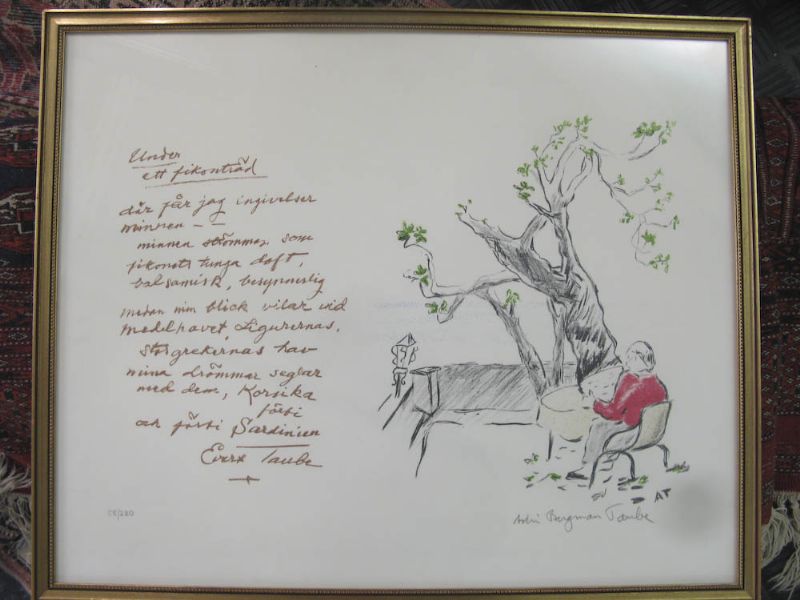 Under
ett fikonträd
där får jag ingivelser
minnen – –
minnen strömmar som
fikonets tunga doft,
balsamisk, besynnerlig
medan min blick vilar vid
medelhavet, Ligurernas,
storgrekernas hav
mina drömmar seglar
med dem, Korsika
förbi
och förbi Sardinien
Evert Taube
/280
AT
Astri Bergman Taube